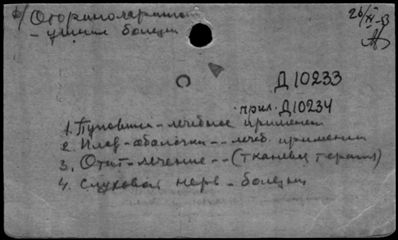 б/ Оторинолариногол
- ушния болезни
26/XI-53
Д10233
чрил. Д10234
1. Пуповина - лечебное применен
2. Плод - оболочки -- лечеб. применен
3. Отит - лечение -- (тканевая терапия)
4. Слуховой нерв - болезни